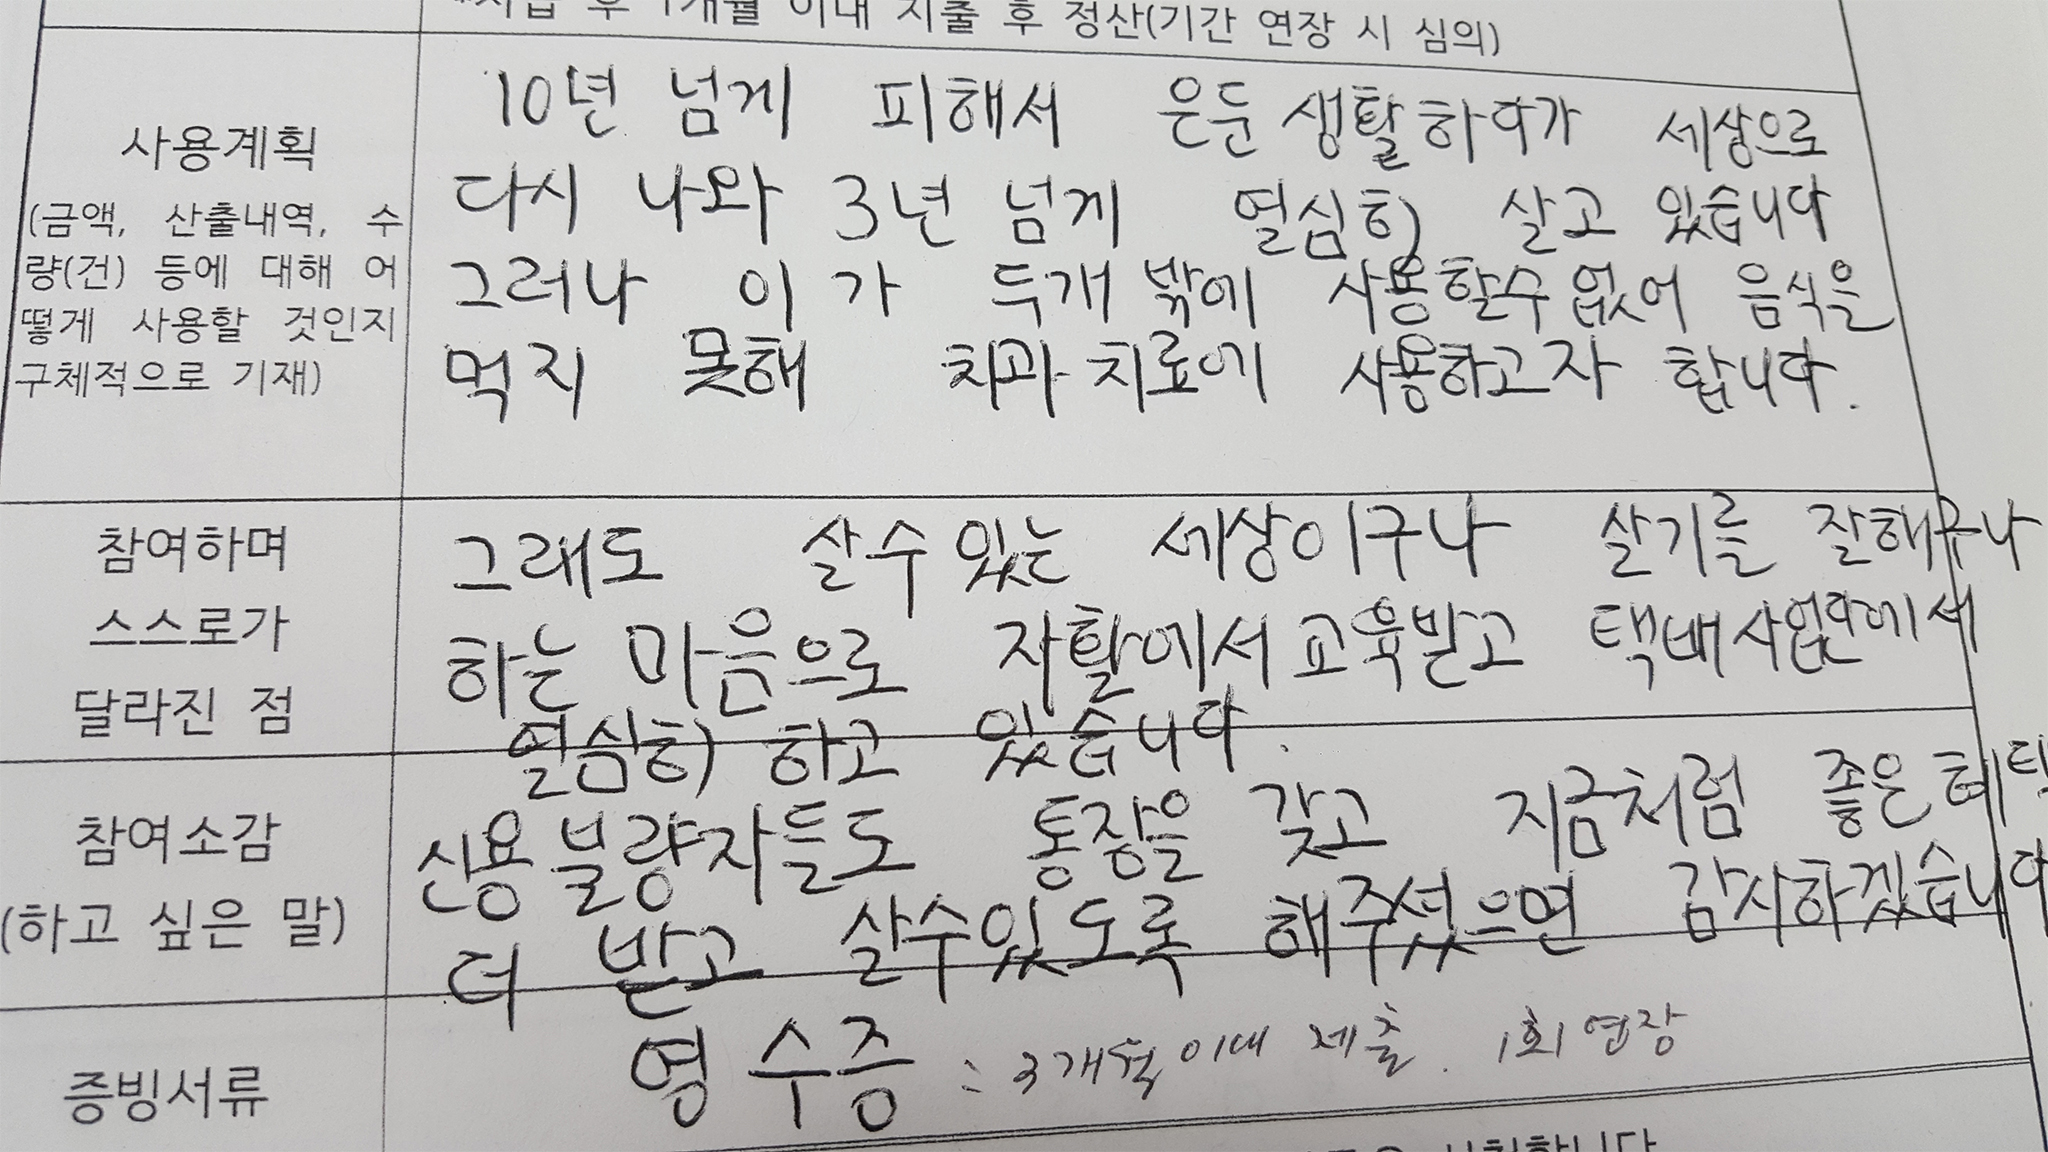 후 1개월 이내 지출 후 정산(기간 연장 시 심의)
사용계획
(금액, 산출내역, 수
량(건) 등에 대해 어
떻게 사용할 것인지
구체적으로 기재)
10년 넘게 피해서 은둔 생활하다가 세상으로
다시 나와 3년 넘게 열심히 살고 있습니다
그러나 이가 두개 밖에 사용할수 없어 음식을
먹지 못해 치과 치료에 사용하고자 합니다.
참여하며
스스로가
달라진 점
그래도 살수 있는 세상이구나 살기를 잘해구나
하는 마음으로 자활에서 교육받고 택배사업단에서
열심히 하고 있습니다.
참여소감
(하고 싶은 말)
신용 불량자들도 통장을 갖고 지금처럼 좋은 혜택
더 받고 살수있도록 해주셨으면 감사하겠습니다
증빙서류
영수증 : 3개월이내 제출. 1회 연장